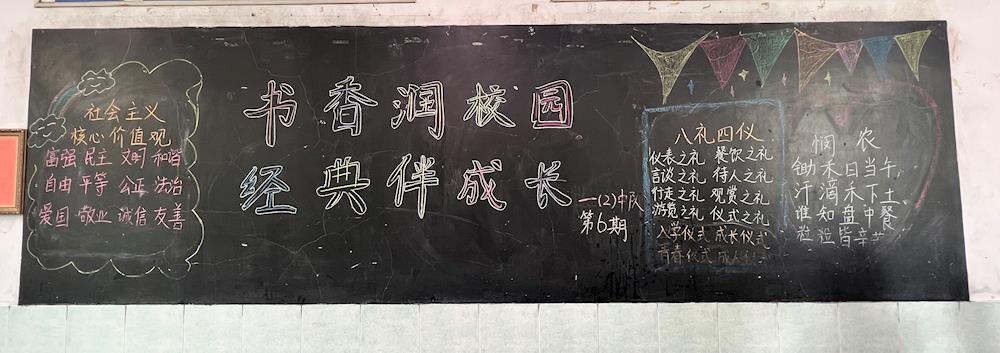 社会主义
核心价值观
富强 民主 文明 和谐
自由 平等 公正 法治
爱国 敬业 诚信 友善
书香润校园
经典伴成长
一(2)中队
第6期
八礼四仪
仪表之礼 餐饮之礼
言谈之礼 待人之礼
行走之礼 观赏之礼
游览之礼 仪式之礼
入学仪式 成长仪式
青春仪式 成人仪式
悯农
锄禾日当午,
汗滴禾下土、
谁知盘中餐
粒粒皆辛苦